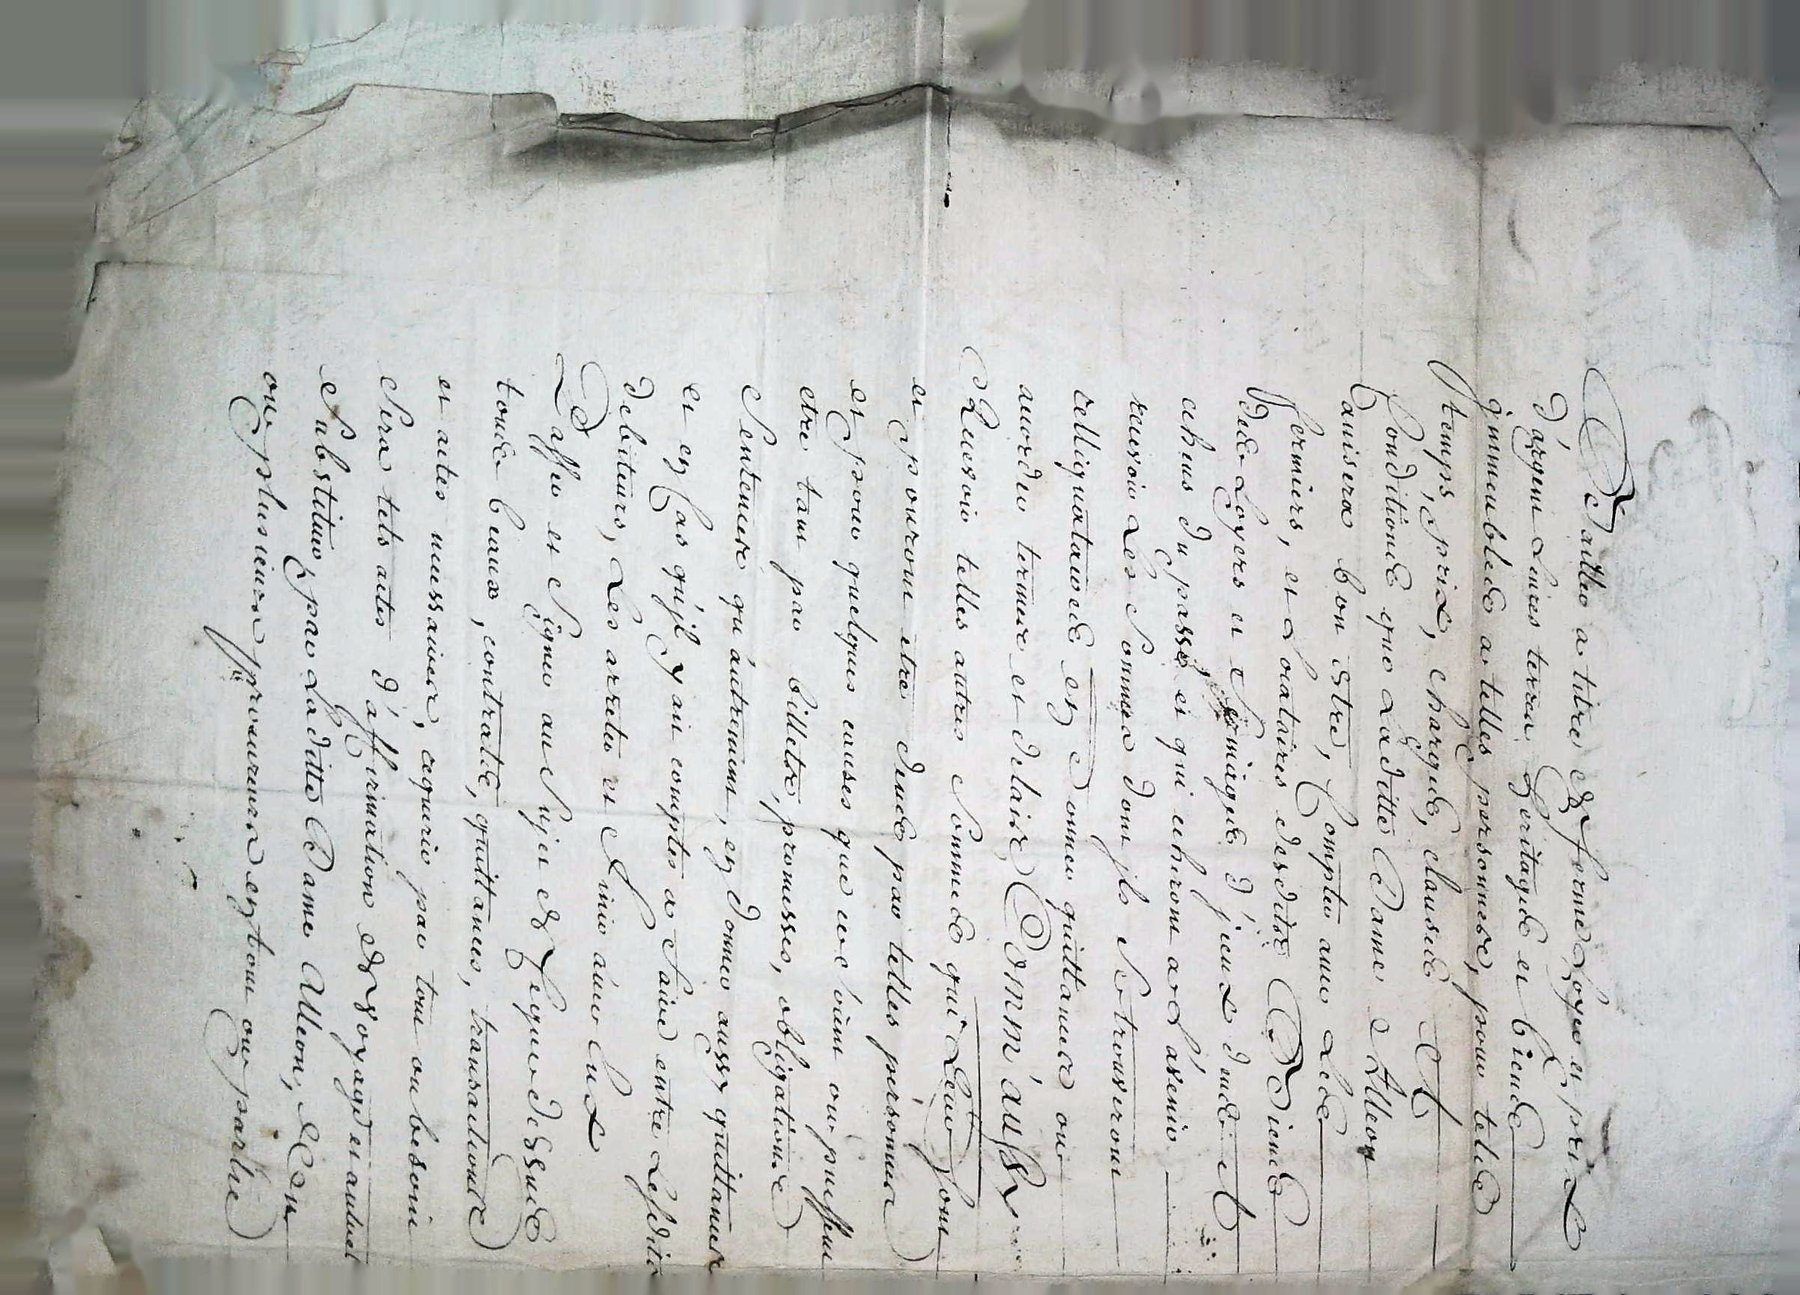 Bailler a titre de ferme Loyer et prix
d'argent Lieux terres heritages et biens
immeubles a telles personnes, pour telles
temps, prix, charges, clauses Et
Conditions que Laditte Dame Alleon
avisera bon estre, Compter avec Les
fermiers, et Locataires desdits Biens
des Loyers et fermages d'jceux deubs Et
echeus du passé et qui echeront a L'avenir
recevoir Les Sommes dont jls Se trouveront
relliquataires en donner quittances ou
accorder termes et delais, Comm' aussy
Recevoir telles autres Sommes qui Leur sont
et pouront etre deues par telles personnes
et pour quelques causes que ce Soient ou puissent
etre tant par billets, promesses, obligations
Sentences qu'autrement, en donner aussy quittances
et en Cas qu'jl y ait comptes a faire entre Lesdits
debiteurs, Les arreter et finir avec Eux
Passer et Signer au Sujet de Ceque dessus
toutes beaux, contrats, quittances, transactions
et actes necessaires, requerir par tout ou besoin
Sera tels actes d'affirmation de Voyages et autres
Substituer par Laditte Dame Alleon, Un
ou plusieurs procureurs en tout ou partie